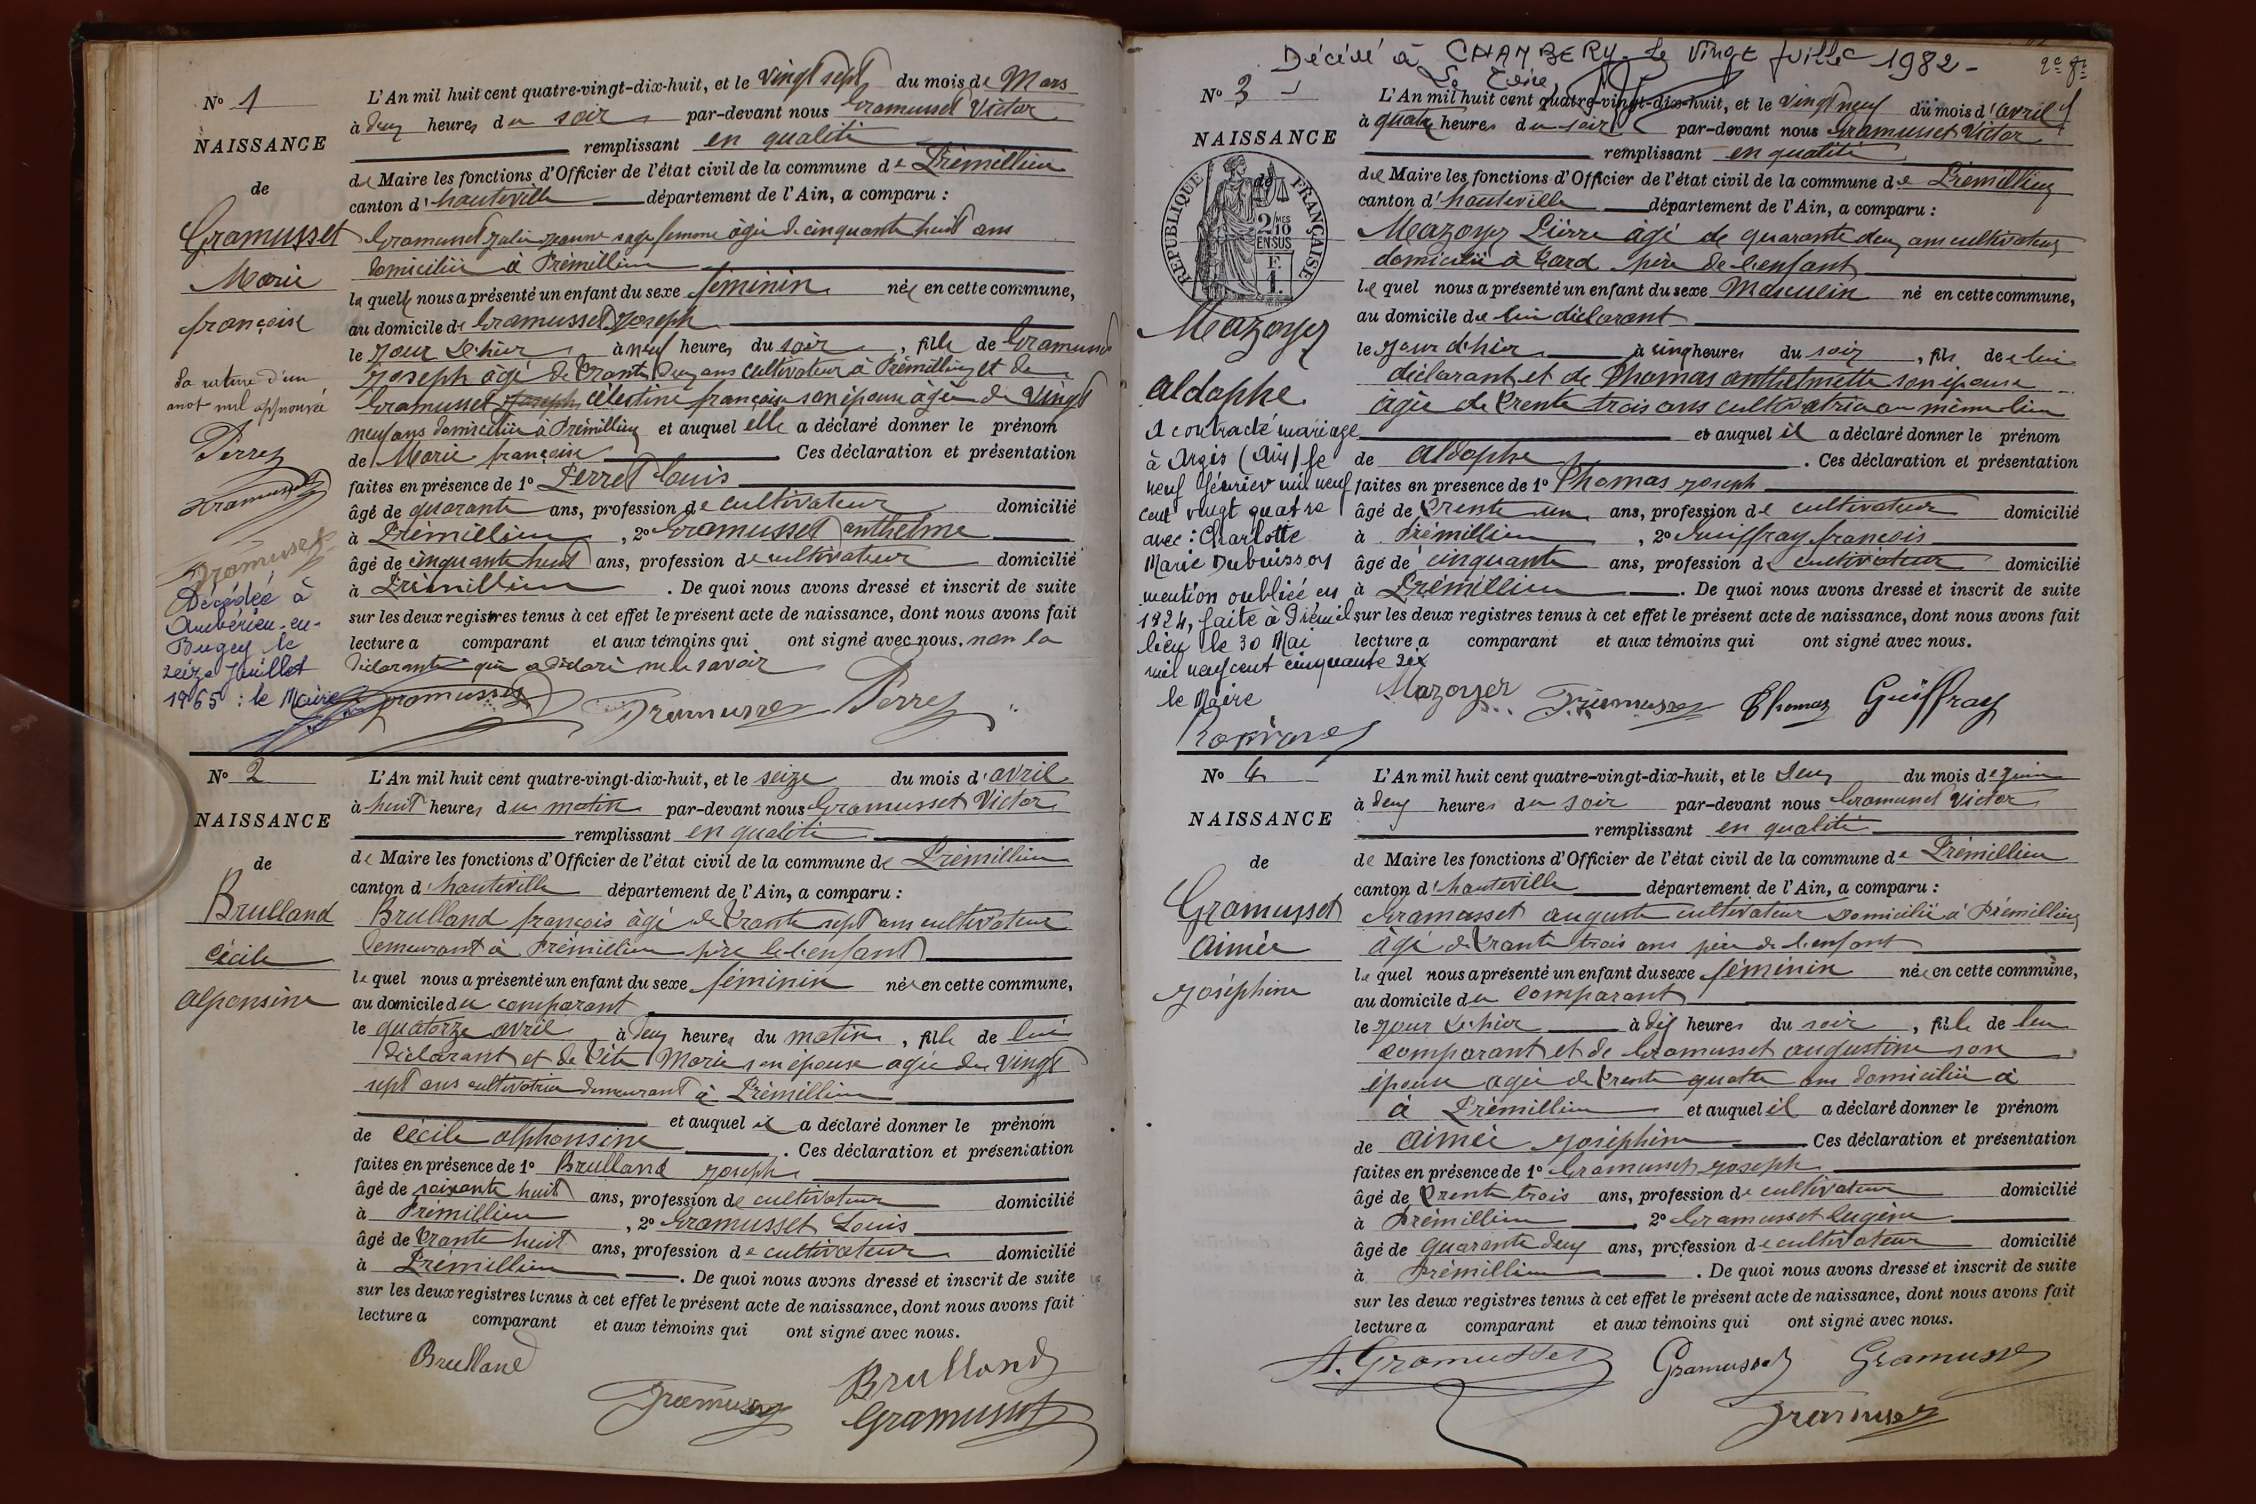 N° 1
NAISSANCE
de
Gramusset
Marie
françoise
La rature d'un
mot nul approuvée
Perret
Gramusset
Gramusset
Décédée à
Ambérieu-en-
Bugey le
seize Juillet
1965 : le Maire
L'An mil huit cent quatre-vingt-dix-huit, et le vingt sept du mois de Mars
à deux heures du soir par-devant nous Gramusset Victor
remplissant en qualité
de Maire les fonctions d'Officier de l'état civil de la commune de Prémillieu
canton d'hauteville département de l'Ain, a comparu :
Gramusset Julie Jeanne sage femme âgée de cinquante huit ans
domiciliée à Prémillieu
la quelle nous a présenté un enfant du sexe féminin née en cette commune,
au domicile de Gramusset Joseph
le jour d'hier à neuf heures du soir, fille de Gramusset
Joseph âgé de trante deux ans cultivateur à Prémillieu et de
Gramusset Joseph célestine françoise son épouse âgée de vingt
neuf ans domiciliée à Prémillieu et auquel elle a déclaré donner le prénom
de Marie françoise Ces déclaration et présentation
faites en présence de 1° Perret Louis
âgé de quarante ans, profession de cultivateur domicilié
à Prémillieu, 2° Gramusset anthelme
âgé de cinquante huit ans, profession de cultivateur domicilié
à Prémillieu. De quoi nous avons dressé et inscrit de suite
sur les deux registres tenus à cet effet le présent acte de naissance, dont nous avons fait
lecture a comparant et aux témoins qui ont signé avec nous, non la
déclarante qui a déclaré ne le savoir
Gramusset Gramusset Perret
N° 2
NAISSANCE
de
Brulland
Cécile
alponsine
L'An mil huit cent quatre-vingt-dix-huit, et le seize du mois d'avril
à huit heures du matin par-devant nous Gramusset Victor
remplissant en qualité
de Maire les fonctions d'Officier de l'état civil de la commune de Prémillieu
canton d'hauteville département de l'Ain, a comparu :
Brulland françois âgé de trante sept ans cultivateur
demeurant à Prémillieu père de l'enfant
le quel nous a présenté un enfant du sexe féminin née en cette commune,
au domicile du comparant
le quatorze avril à deux heures du matin, fille de lui
déclarant et de Marie son épouse agée de vingt
sept ans cultivatrice demeurant à Prémillieu
et auquel il a déclaré donner le prénom
de Cécile alphonsine. Ces déclaration et présentation
faites en présence de 1° Brulland Joseph
âgé de soixante huit ans, profession de cultivateur domicilié
à Prémillieu, 2° Gramusset Louis
âgé de trante huit ans, profession de cultivateur domicilié
à Prémillieu. De quoi nous avons dressé et inscrit de suite
sur les deux registres tenus à cet effet le présent acte de naissance, dont nous avons fait
lecture a comparant et aux témoins qui ont signé avec nous.
Brulland Brulland
Gramusset Gramusset
Décédé à CHAMBERY le Vingt Juillet 1982 -
2e ft
N° 3
NAISSANCE
de
RÉPUBLIQUE FRANÇAISE
2/10 MES
EN SUS
F.
1.
Mazoyer
aldophe
A contracté mariage
à Argis (Ain) le
neuf février mil neuf
cent vingt quatre
avec : Charlotte
Marie Dubuisson
mention oubliée en
1924, faite à Prémil
lieu le 30 Mai
mil neuf cent cinquante six
le Maire
L'An mil huit cent quatre-vingt-dix-huit, et le vingt neuf du mois d'avril
à quatre heures du soir par-devant nous Gramusset Victor
remplissant en qualité
de Maire les fonctions d'Officier de l'état civil de la commune de Prémillieu
canton d'hauteville département de l'Ain, a comparu :
Mazoyer Pierre âgé de quarante deux ans cultivateur
domicilié à père de l'enfant
le quel nous a présenté un enfant du sexe Masculin né en cette commune,
au domicile de lui déclarant
le jour d'hier à cinq heures du soir, fils de lui
déclarant et de Thomas anthelmette son épouse
âgée de trente trois ans cultivatrice au même lieu
et auquel il a déclaré donner le prénom
de aldophe. Ces déclaration et présentation
faites en présence de 1° Thomas Joseph
âgé de trente un ans, profession de cultivateur domicilié
à Prémillieu, 2° Guiffray françois
âgé de cinquante ans, profession de cultivateur domicilié
à Prémillieu. De quoi nous avons dressé et inscrit de suite
sur les deux registres tenus à cet effet le présent acte de naissance, dont nous avons fait
lecture a comparant et aux témoins qui ont signé avec nous.
Mazoyer Gramusset Thomas Guiffray
N° 4
NAISSANCE
de
Gramusset
aimée
Joséphine
L'An mil huit cent quatre-vingt-dix-huit, et le deux du mois de juin
à deux heures du soir par-devant nous Gramusset Victor
remplissant en qualité
de Maire les fonctions d'Officier de l'état civil de la commune de Prémillieu
canton d'hauteville département de l'Ain, a comparu :
Gramusset auguste cultivateur domicilié à Prémillieu
âgé de trante trois ans père de l'enfant
le quel nous a présenté un enfant du sexe féminin née en cette commune,
au domicile du comparant
le jour d'hier à dix heures du soir, fille de lui
comparant et de Gramusset augustine son
épouse agée de trente quatre ans domiciliée à
à Prémillieu et auquel il a déclaré donner le prénom
de aimée Joséphine Ces déclaration et présentation
faites en présence de 1° Gramusset Joseph
âgé de trente trois ans, profession de cultivateur domicilié
à Prémillieu, 2° Gramusset Eugène
âgé de quarante deux ans, profession de cultivateur domicilié
à Prémillieu. De quoi nous avons dressé et inscrit de suite
sur les deux registres tenus à cet effet le présent acte de naissance, dont nous avons fait
lecture a comparant et aux témoins qui ont signé avec nous.
A. Gramusset Gramusset Gramusset
Gramusset